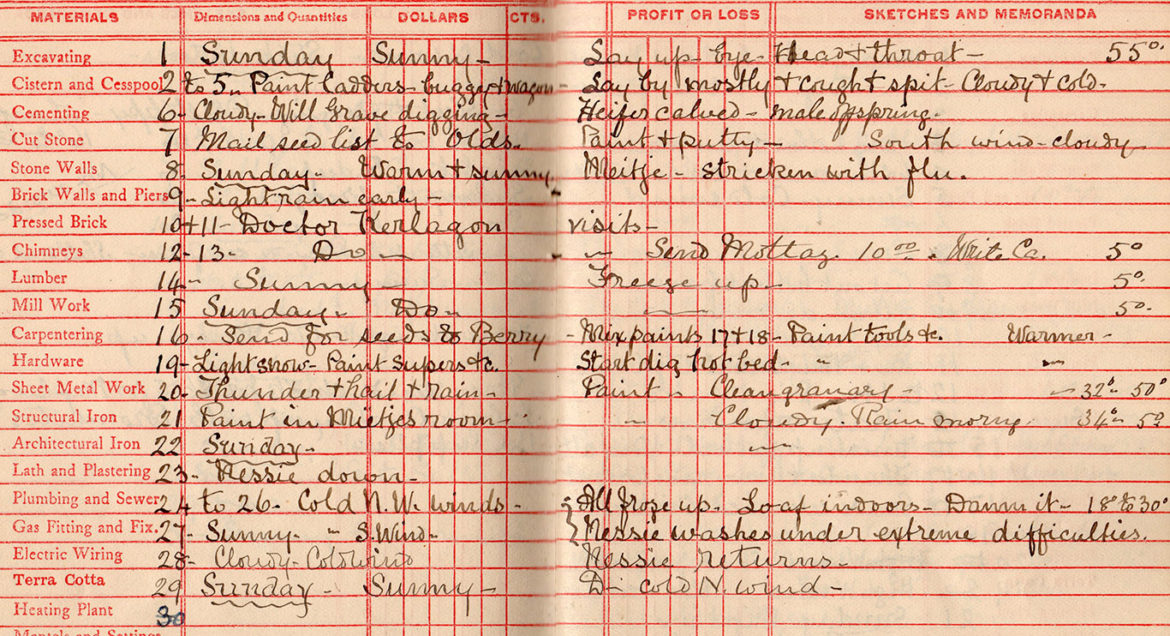 MATERIALS Dimensions and Quantities DOLLARS CTS. PROFIT OR LOSS SKETCHES AND MEMORANDA
Excavating 1 Sunday Sunny - Lay up - Eye - Head & throat - 55°
Cistern and Cesspool 2 to 5 - Paint ladders - buggy & wagon - Lay by mostly & cough & spit - Cloudy & cold -
Cementing 6 - Cloudy - Will Grave digging - Heifer calved - male offspring.
Cut Stone 7 Mail seed list to Olds. Paint & putty - South wind - cloudy
Stone Walls 8 Sunday - Warm & sunny - Meitje - stricken with flu.
Brick Walls and Piers 9 - Light rain early -
Pressed Brick 10 & 11 - Doctor Kerlagon visits -
Chimneys 12 - 13 - Do - " Send 10 00 . Write Co. 5°
Lumber 14 - Sunny - Freeze up - 5°.
Mill Work 15 Sunday - Do - 5°.
Carpentering 16 - Send for seeds to Berry - Mix paints 17 & 18 - Paint tools &c. Warmer -
Hardware 19 - Light snow - Paint supers &c. Start dig hot bed - "
Sheet Metal Work 20 - Thunder & hail & rain - Paint " Clean granary - 32° 50°
Structural Iron 21 Paint in Mietjes room - " Cloudy. Rain morng. 34° 5°
Architectural Iron 22 Sunday -
Lath and Plastering 23 - Nessie down -
Plumbing and Sewer 24 to 26 - Cold N.W. winds - All froze up - Loaf indoors - Damn it - 18° to 30°
Gas Fitting and Fix. 27 - Sunny - " S. Wind - Nessie washes under extreme difficulties.
Electric Wiring 28 - Cloudy - Cold wind Nessie returns -
Terra Cotta 29 Sunday - Sunny - D - cold N. wind -
Heating Plant 30